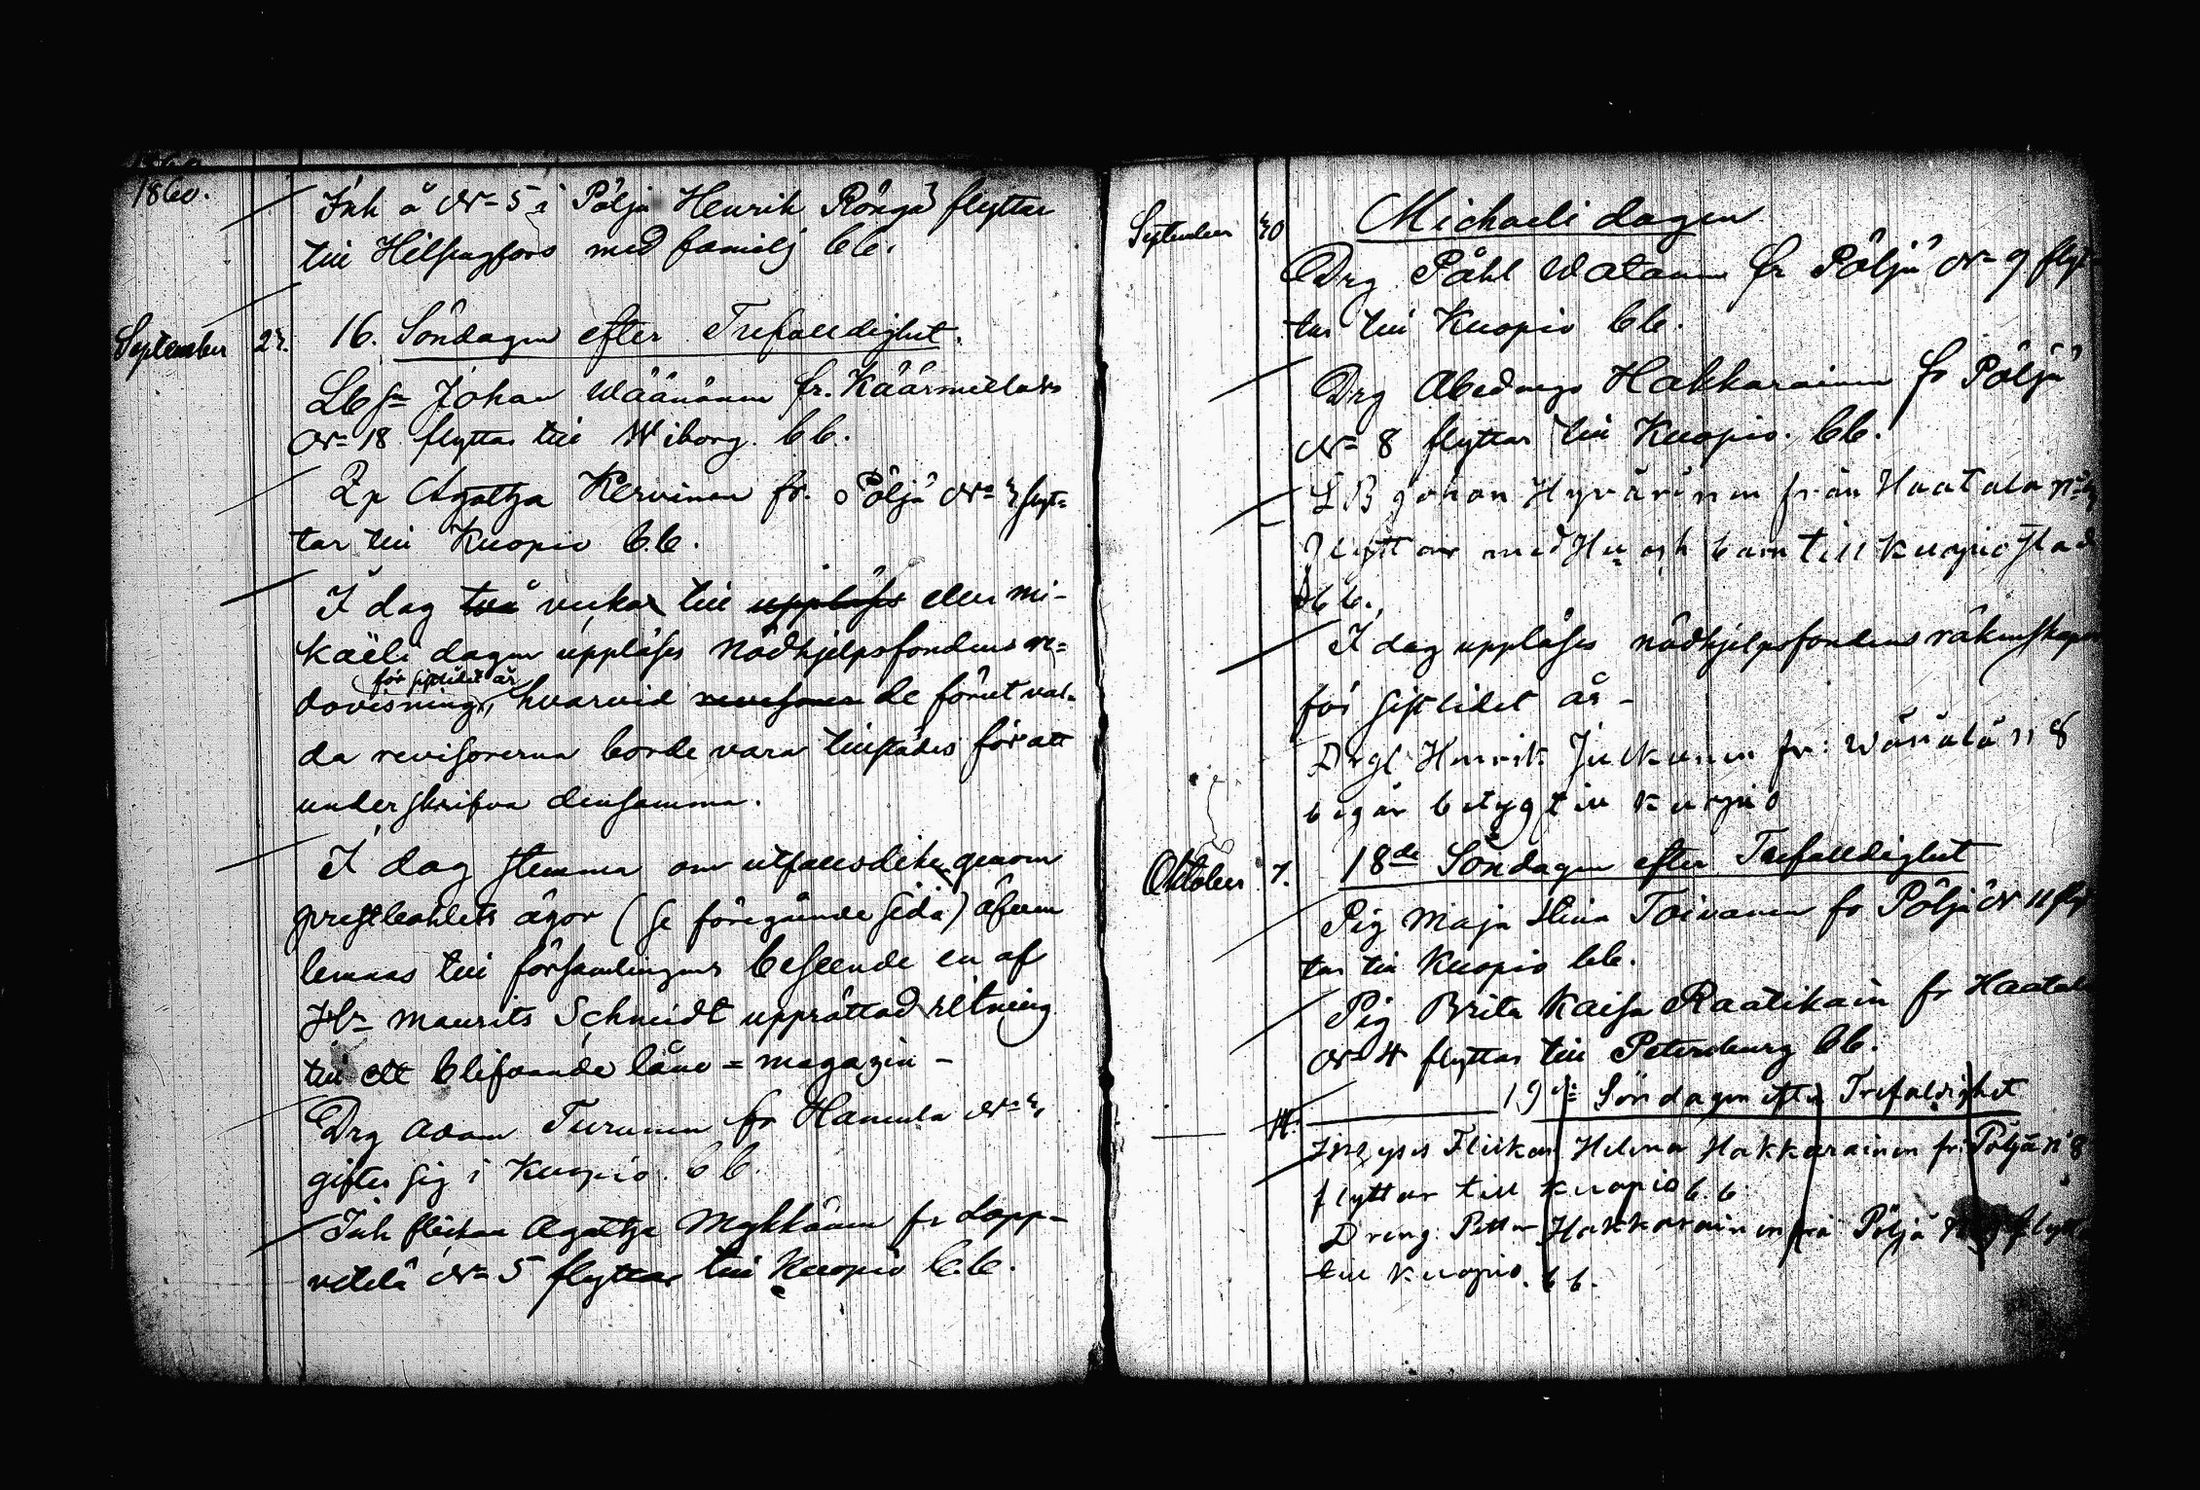 1860.
Inh å No 5 i Pöljä Henrik Röngä flyttar
till Helsingfors med familj bb.
September 23. 16. Söndagen efter Trefalldighet.
Lbsn Johan Wäänänen fr. Käärmelaks
No 18 flyttar till Wiborg. bb.
Zp Agatha Kervinen fr. Pöljä No 3 flyt-
tar till Kuopio b.b.
I dag två veckor till uppläses eller Mi-
kaëli dagen uppläses Nödhjelpsfondens re-
för sistlidet år
dovisning, hvarvid revisorer de förut val-
da revisorerna borde vara tillstädes för att
underskrifva densamma.
I dag stemma om utfallsdike genom
prestbohlets ägor (se föregående sida) äfven
lemnas till församlingens beseende en af
Hr Maurits Schmidt upprättad ritning
till ett blifvande låne-magazin -
Drg Adam Turunen fr Hamula No 3
gifter sig i Kuopio. bb
Inh flickan Agatha Mykkänen fr Lapp-
vetelä No 5 flyttar till Kuopio b.b.
September 30 Michaeli dagen
Drg Påhl Watanen fr Pöljä No 9 flyt-
tar till Kuopio bb.
Drg Abednego Hakkarainen fr Pöljä
No 8 flyttar till Kuopio. bb.
LB Johan Hyvärinen från Haatala
flyttar med Hu och barn till Kuopio stad
bb.
I dag uppläses nödhjelpsfondens räkenskaper
för sistlidet år -
Drgl Henrik Julkunen fr: Wänälä n 8
begär betyg till Kuopio
Oktober 7. 18de Söndagen efter Trefalldighet
Pig Maja Stina Toivanen fr Pöljä No 11 flyt
tar till Kuopio bb.
Pig Brita Kaisa Raatikain fr Haatala
No 4 flyttar till Petersburg bb.
14. 19de Söndagen efter Trefaldighet
Inhyses Flickan Helena Hakkarainen fr. Pöljä No 8
flyttar till Kuopio b.b.
Dreng Petter Hakkarainen frå Pöljä flyttar
till Kuopio. bb.